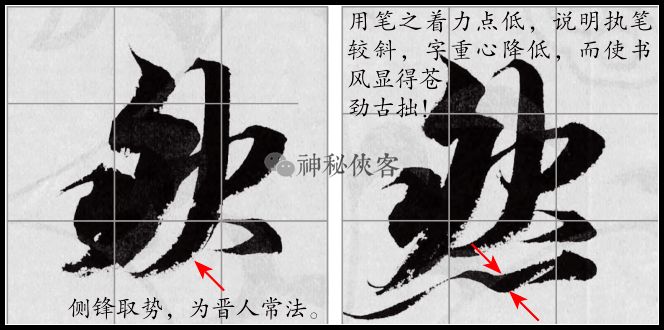 用笔之着力点低，说明执笔
较斜，字重心降低，而使书
风显得苍
劲古拙！
神秘侠客
侧锋取势，为晋人常法。